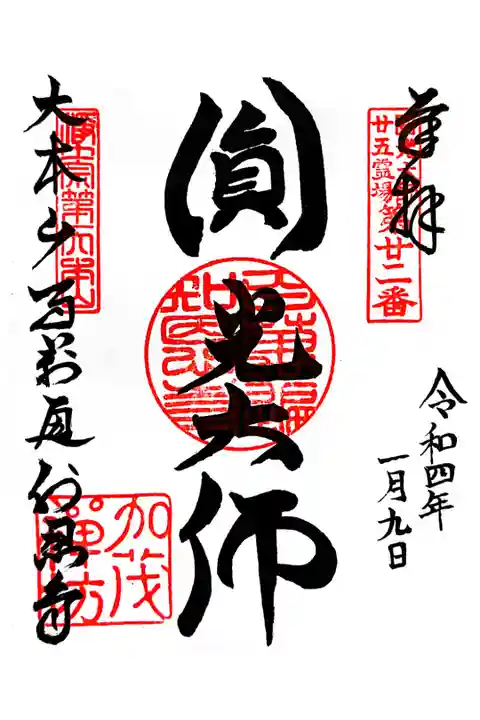 奉拝
廿五靈場第廿二番
令和四年
一月九日
圓光大師
大本山百萬遍知恩寺
加茂